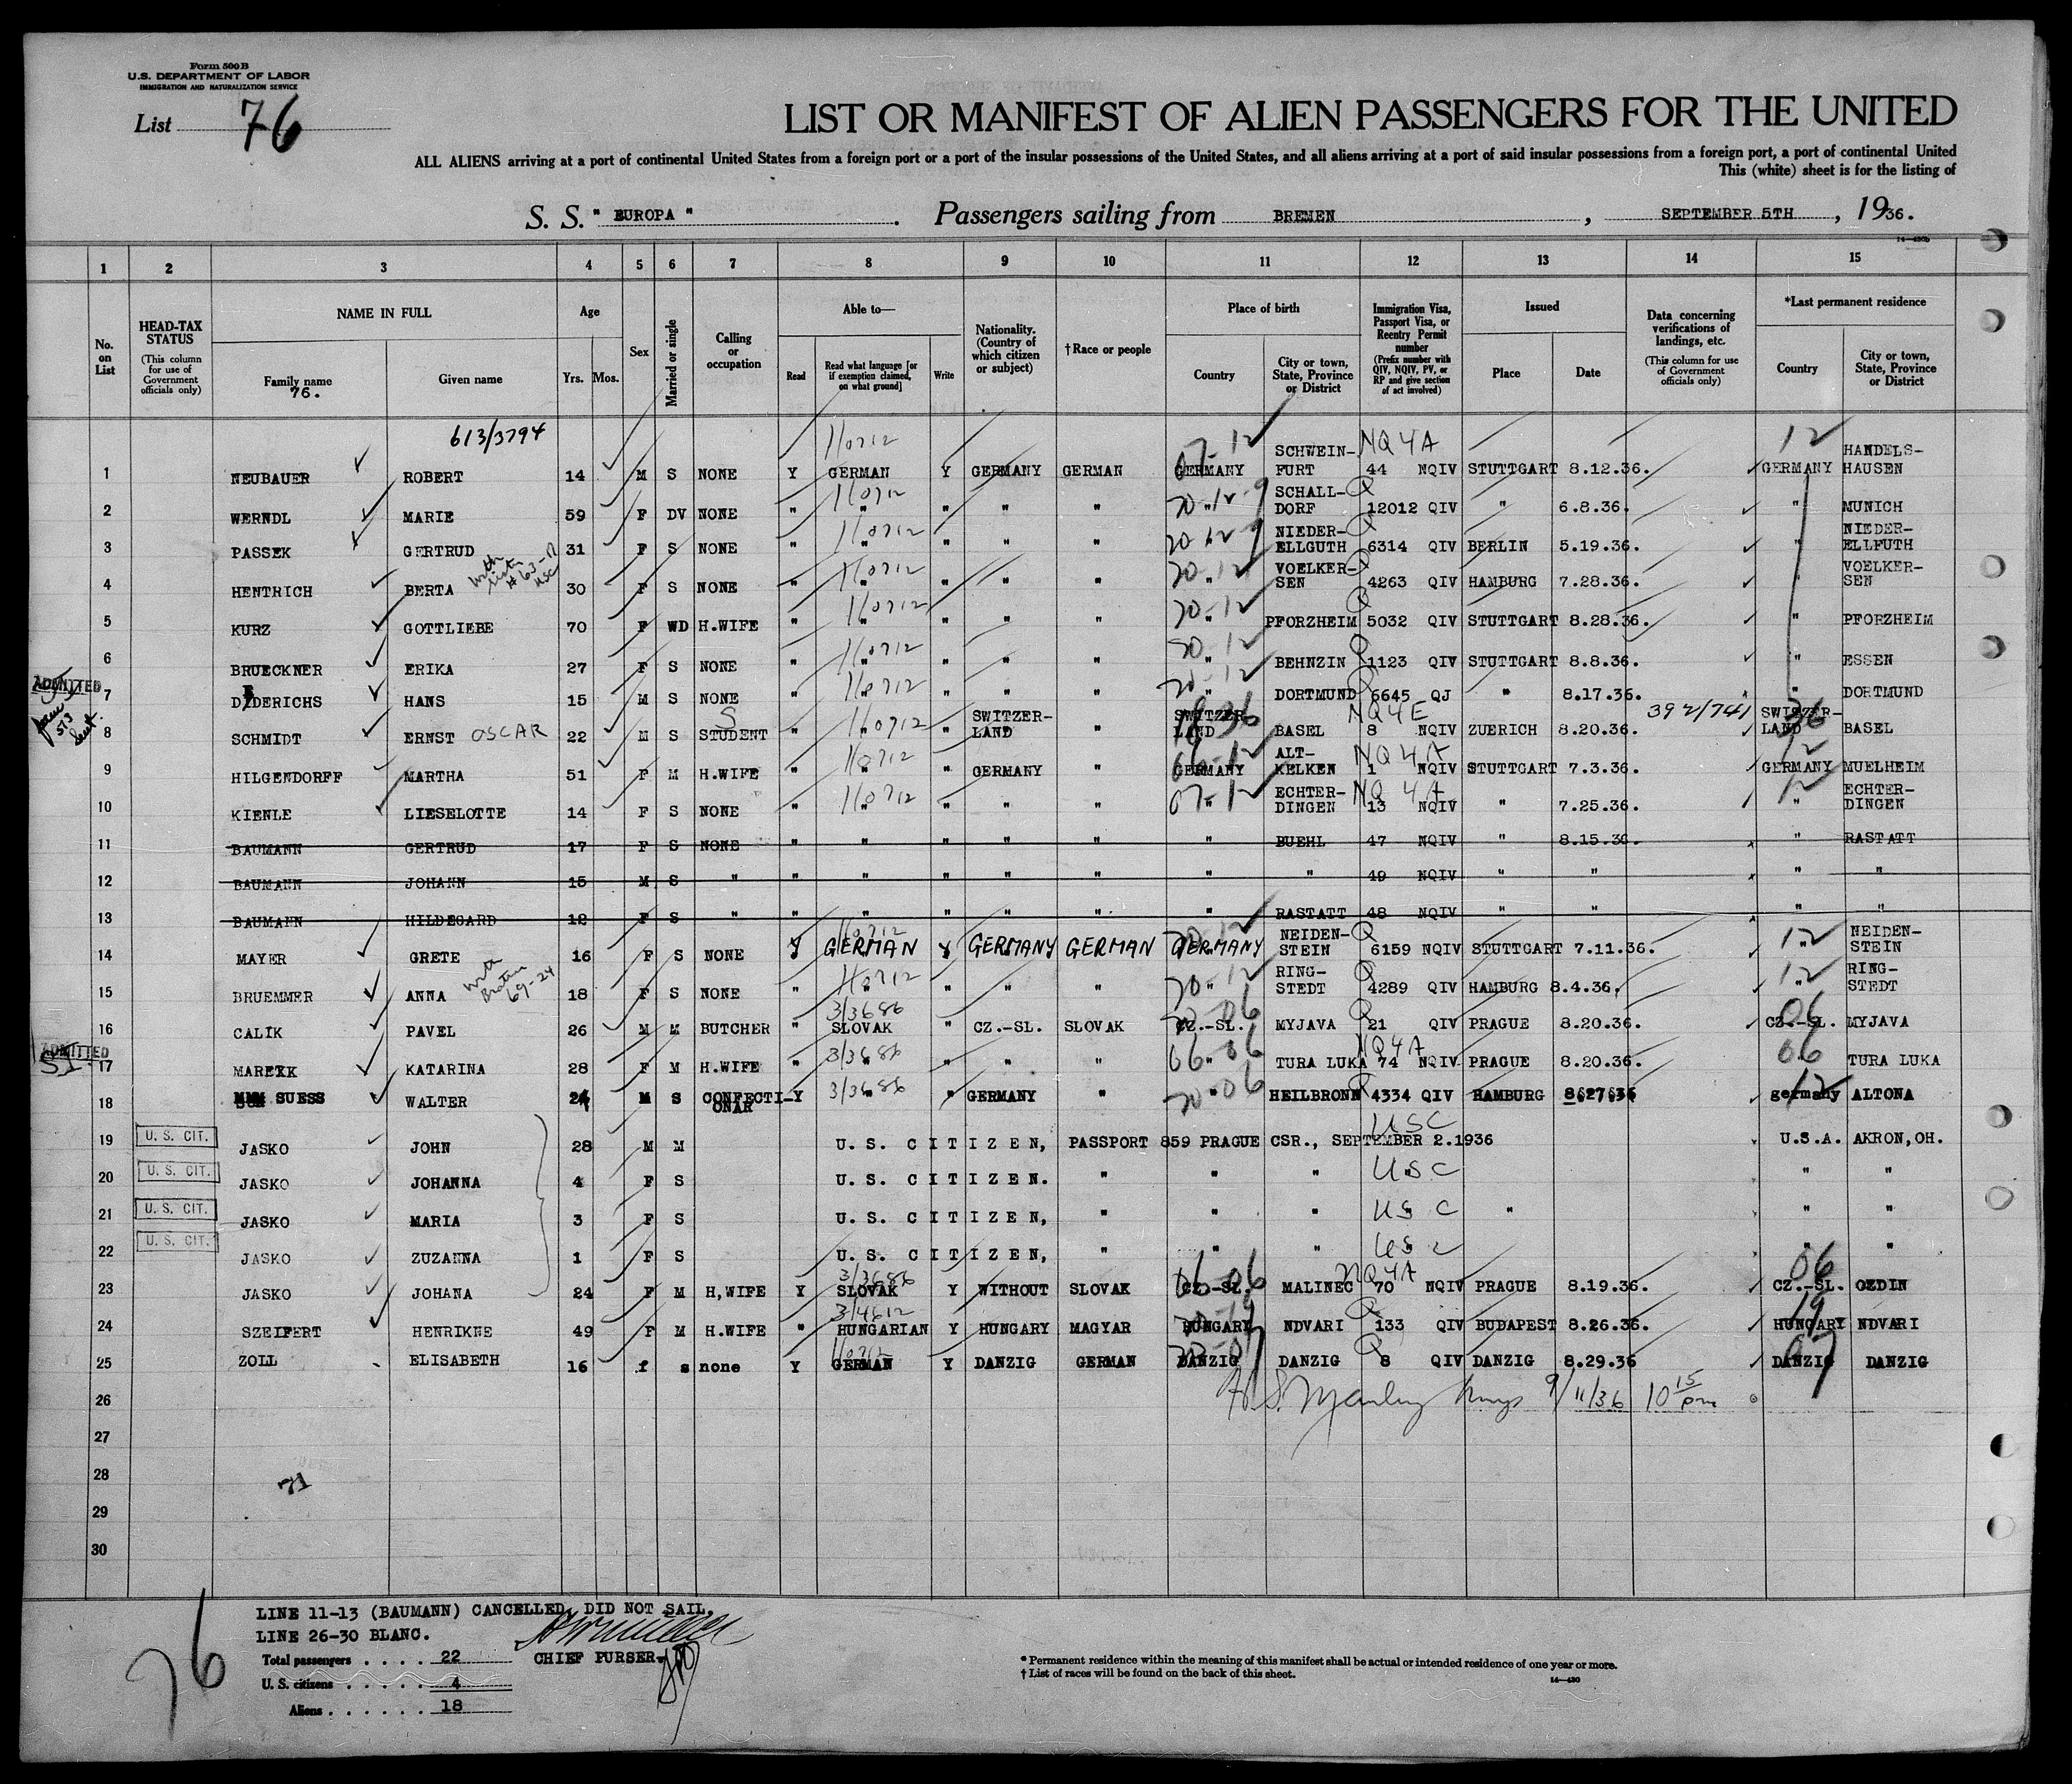 Form 500 B
U.S. DEPARTMENT OF LABOR
IMMIGRATION AND NATURALIZATION SERVICE
List 76
LIST OR MANIFEST OF ALIEN PASSENGERS FOR THE UNITED
ALL ALIENS arriving at a port of continental United States from a foreign port or a port of the insular possessions of the United States, and all aliens arriving at a port of said insular possessions from a foreign port, a port of continental United
This (white) sheet is for the listing of
S. S. " EUROPA " . Passengers sailing from BREMEN , SEPTEMBER 5TH , 1936.
1 2 3 4 5 6 7 8 9 10 11 12 13 14 15
No. on List
HEAD-TAX STATUS (This column for use of Government officials only)
NAME IN FULL Family name 76. Given name
Age Yrs. Mos.
Sex
Married or single
Calling or occupation
Able to— Read Read what language [or if exemption claimed, on what ground] Write
Nationality. (Country of which citizen or subject)
†Race or people
Place of birth Country City or town, State, Province or District
Immigration Visa, Passport Visa, or Reentry Permit number (Prefix number with QIV, NQIV, PV, or RP and give section of act involved)
Issued Place Date
Data concerning verifications of landings, etc. (This column for use of Government officials only)
*Last permanent residence Country City or town, State, Province or District
613/3794 110712 07-12 NQ4A 12
1 NEUBAUER ROBERT 14 M S NONE Y GERMAN Y GERMANY GERMAN GERMANY SCHWEIN-FURT 44 NQIV STUTTGART 8.12.36. GERMANY HANDELS-HAUSEN
2 WERNDL MARIE 59 F DV NONE " " " " " " SCHALL-DORF 12012 QIV " 6.8.36. " MUNICH
3 PASSEK GERTRUD 31 F S NONE " " " " " " NIEDER-ELLGUTH 6314 QIV BERLIN 5.19.36. " NIEDER-ELLFUTH
4 HENTRICH BERTA 30 F S NONE " " " " " " VOELKER-SEN 4263 QIV HAMBURG 7.28.36. " VOELKER-SEN
5 KURZ GOTTLIEBE 70 F WD H.WIFE " " " " " " PFORZHEIM 5032 QIV STUTTGART 8.28.36. " PFORZHEIM
6 BRUECKNER ERIKA 27 F S NONE " " " " " " BEHNZIN 1123 QIV STUTTGART 8.8.36. " ESSEN
ADMITTED
7 DIEDERICHS HANS 15 M S NONE " " " " " " DORTMUND 6645 QJ " 8.17.36. " DORTMUND
8 SCHMIDT ERNST OSCAR 22 M S STUDENT " " " SWITZER-LAND " SWITZER-LAND BASEL 8 NQIV NQ4E ZUERICH 8.20.36. 392/741 SWITZER-LAND BASEL
9 HILGENDORFF MARTHA 51 F M H.WIFE " " " GERMANY " GERMANY ALT-KELKEN 1 NQIV NQ4A STUTTGART 7.3.36. GERMANY MUELHEIM
10 KIENLE LIESELOTTE 14 F S NONE " " " " " " ECHTER-DINGEN 13 NQIV NQ4A " 7.25.36. " ECHTER-DINGEN
11 BAUMANN GERTRUD 17 F S NONE " " " " " " BUEHL 47 NQIV " 8.15.36. " RASTATT
12 BAUMANN JOHANN 15 M S " " " " " " " " 49 NQIV " " " "
13 BAUMANN HILDEGARD 12 F S " " " " " " " RASTATT 48 NQIV " " " "
14 MAYER GRETE 16 F S NONE Y GERMAN Y GERMANY GERMAN GERMANY NEIDEN-STEIN 6159 NQIV STUTTGART 7.11.36. " NEIDEN-STEIN
15 BRUEMMER ANNA 18 F S NONE " " " " " " RING-STEDT 4289 QIV HAMBURG 8.4.36. " RING-STEDT
16 CALIK PAVEL 26 M M BUTCHER " SLOVAK " CZ.-SL. SLOVAK CZ.-SL. MYJAVA 21 QIV PRAGUE 8.20.36. CZ.-SL. MYJAVA
ADMITTED
17 MAREKK KATARINA 28 F M H.WIFE " " " " " " TURA LUKA 74 NQIV NQ4A PRAGUE 8.20.36. " TURA LUKA
18 SUESS WALTER 24 M S CONFECTI-ONAR Y " " GERMANY " " HEILBRONN 4334 QIV HAMBURG 8.27.36 germany ALTONA
19 U. S. CIT. JASKO JOHN 28 M M U. S. CITIZEN, PASSPORT 859 PRAGUE CSR., SEPTEMBER 2.1936 USC U.S.A. AKRON,OH.
20 U. S. CIT. JASKO JOHANNA 4 F S U. S. CITIZEN. " " " USC " "
21 U. S. CIT. JASKO MARIA 3 F S U. S. CITIZEN, " " " USC " " "
22 U. S. CIT. JASKO ZUZANNA 1 F S U. S. CITIZEN, " " " USC " "
23 JASKO JOHANA 24 F M H,WIFE Y SLOVAK Y WITHOUT SLOVAK CZ.-SL. MALINEC 70 NQIV NQ4A PRAGUE 8.19.36. CZ.-SL. OZDIN
24 SZEIFERT HENRIKNE 49 F M H.WIFE " HUNGARIAN Y HUNGARY MAGYAR HUNGARY NDVARI 133 QIV BUDAPEST 8.26.36. HUNGARY NDVARI
25 ZOLL ELISABETH 16 f s none Y GERMAN Y DANZIG GERMAN DANZIG DANZIG 8 QIV DANZIG 8.29.36 DANZIG DANZIG
26 9/11/36 10 15 pm
27
28 71
29
30
76
LINE 11-13 (BAUMANN) CANCELLED, DID NOT SAIL,
LINE 26-30 BLANC.
Total passengers . . . . 22 CHIEF PURSER.
U. S. citizens . . . . . 4
Aliens . . . . . . 18
* Permanent residence within the meaning of this manifest shall be actual or intended residence of one year or more.
† List of races will be found on the back of this sheet.
14—430